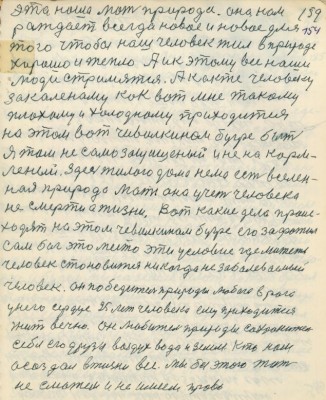 эта наша мать природа. она нам 159
раждает всегда новое и новое для 154
того чтобы наш человек жил в природе
хорошо и тепло. А и к этому все наши
люди стримлятся. А как же человеку
закаленаму как вот мне такому
плохому и холодному приходится
на этом вот чевилкином бугре быть
Я там не само защищеный и не на корм-
леный. Здесь жилого дома нема есть вселен-
ная природа мать она учет человека
не смерти а жизни. Вот какие дела проис-
ходять на этом чевилкином бугре его
сам бог это место эти условие где
человек становится никогда не заболеваемый
человек. он победител природы любого врага
у него сердце 25 лет человека ему приходится
жить вечно. он любител природы
себя его друзья воздух вода и земля. Кто нам
создал в жизни все. мы без этого жить
не сможем и не имеем право